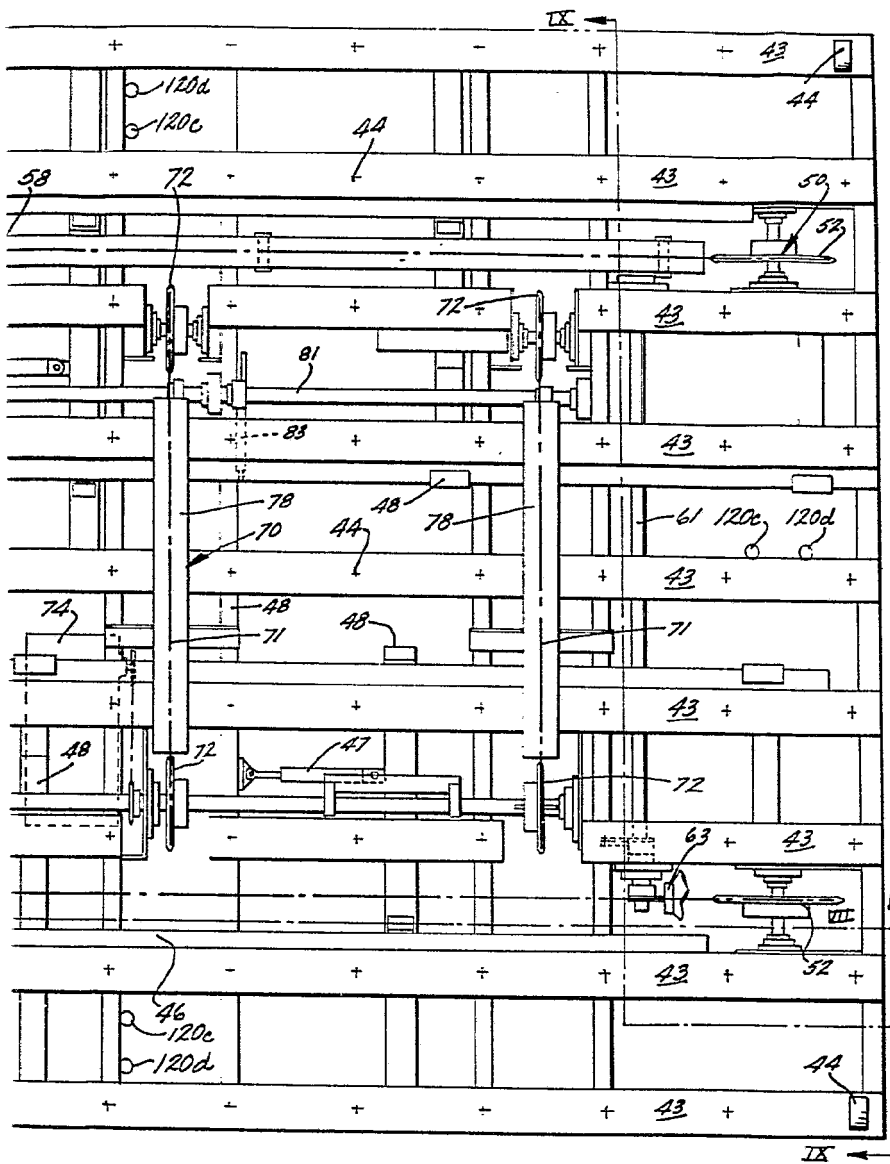 IX
43
44
120d
120c
44
43
58
72
50
52
72
43
81
83
43
78
48
78
70
44
61
120c
120d
43
74
48
48
71
71
43
48
72
47
72
43
63
VII
52
46
43
120c
120d
44
43
IX